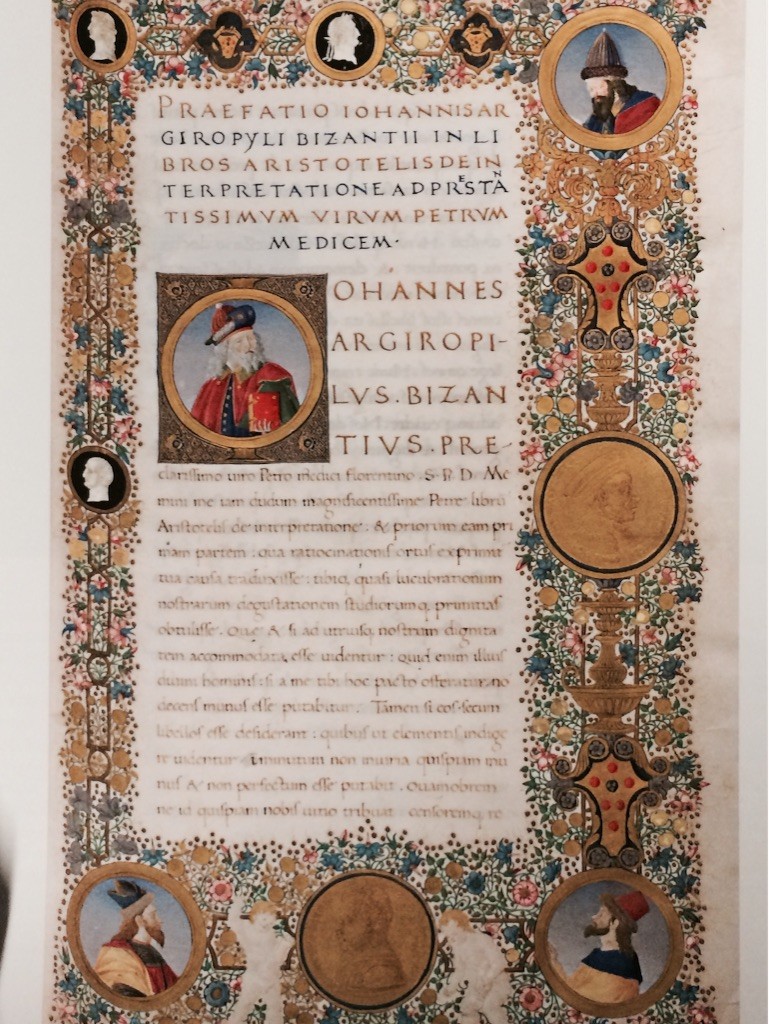 PRAEFATIO IOHANNIS AR
GIROPYLI BIZANTII IN LI
BROS ARISTOTELIS DE IN
TERPRETATIONE AD PRESTAN
TISSIMVM VIRVM PETRVM
MEDICEM·
IOHANNES
ARGIROPI-
LVS. BIZAN
TIVS. PRE-
clarissimo uiro Petro medici florentino .S.P.D. Me
mini me iam dudum magnificentissime Petre libru
Aristotelis de interpretatione: & priorum eam pri
mam partem: qua ratiocinationis ortus exprimit
tua causa traduxisse: tibiq, quasi lucubrationum
nostrarum degustationem studiorumq, primitias
obtulisse. Que & si ad utriusq, nostram dignita
tem accommodata esse uidentur: quid enim illius
diuini hominis: si a me tibi hoc pacto offeratur: no
decens munus esse putabitur. Tamen si eos secum
libellos esse desiderant: quibus ut elementis indige
re uidentur Eminutum non iniuria quispiam mu
nus & non perfectum esse putabit. Quamobrem
ne id quispiam nobis uitio tribuat censoremq, re